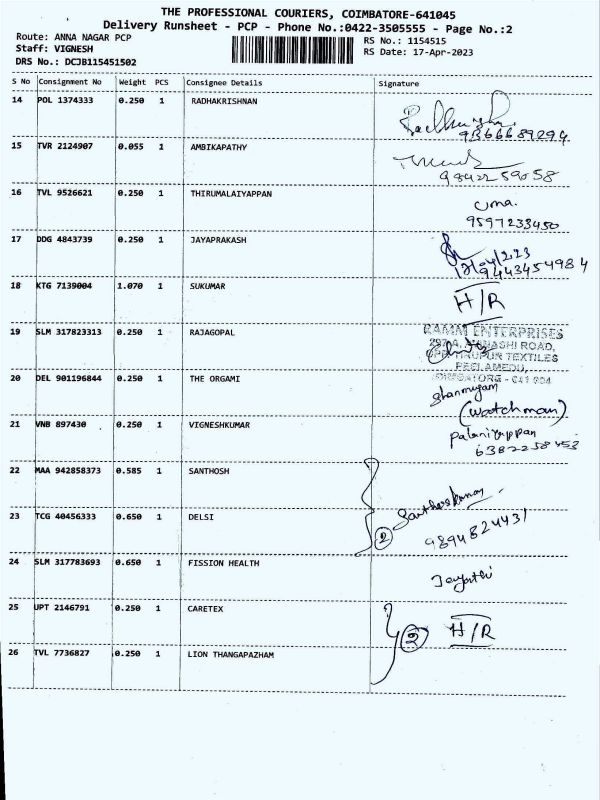 THE PROFESSIONAL COURIERS, COIMBATORE-641045
Delivery Runsheet - PCP - Phone No.:0422-3505555 - Page No.:2
Route: ANNA NAGAR PCP
RS No.: 1154515
Staff: VIGNESH
RS Date: 17-Apr-2023
DRS No.: DCJB115451502
S No Consignment No Weight PCS Consignee Details Signature
14 POL 1374333 0.250 1 RADHAKRISHNAN
9366689294
15 TVR 2124907 0.055 1 AMBIKAPATHY
9842259058
16 TVL 9526621 0.250 1 THIRUMALAIYAPPAN
uma.
9597233450
17 DDG 4843739 0.250 1 JAYAPRAKASH
9443454984
18 KTG 7139004 1.070 1 SUKUMAR
H/R
19 SLM 317823313 0.250 1 RAJAGOPAL
RAMM ENTERPRISES
TIRUPUR TEXTILES
PEELAMEDU,
20 DEL 901196844 0.250 1 THE ORGAMI
COIMBATORE - 641 004
shanmugam
(watchman)
21 VNB 897430 0.250 1 VIGNESHKUMAR
Palaniyappan
6382258453
22 MAA 942858373 0.585 1 SANTHOSH
Santhoshkumar
23 TCG 40456333 0.650 1 DELSI
2
9894824431
24 SLM 317783693 0.650 1 FISSION HEALTH
Jayathi
25 UPT 2146791 0.250 1 CARETEX
2 H/R
26 TVL 7736827 0.250 1 LION THANGAPAZHAM